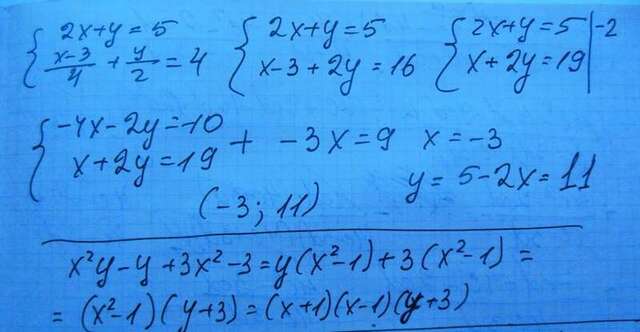 { 2x+y=5      { 2x+y=5      { 2x+y=5 | -2
{ (x-3)/4 + y/2 = 4      { x-3+2y=16      { x+2y=19 |
{ -4x-2y=-10
{ x+2y=19 + -3x=9 x=-3
y=5-2x=11
(-3; 11)
x²y-y+3x²-3=y(x²-1)+3(x²-1)=
=(x²-1)(y+3)=(x+1)(x-1)(y+3)